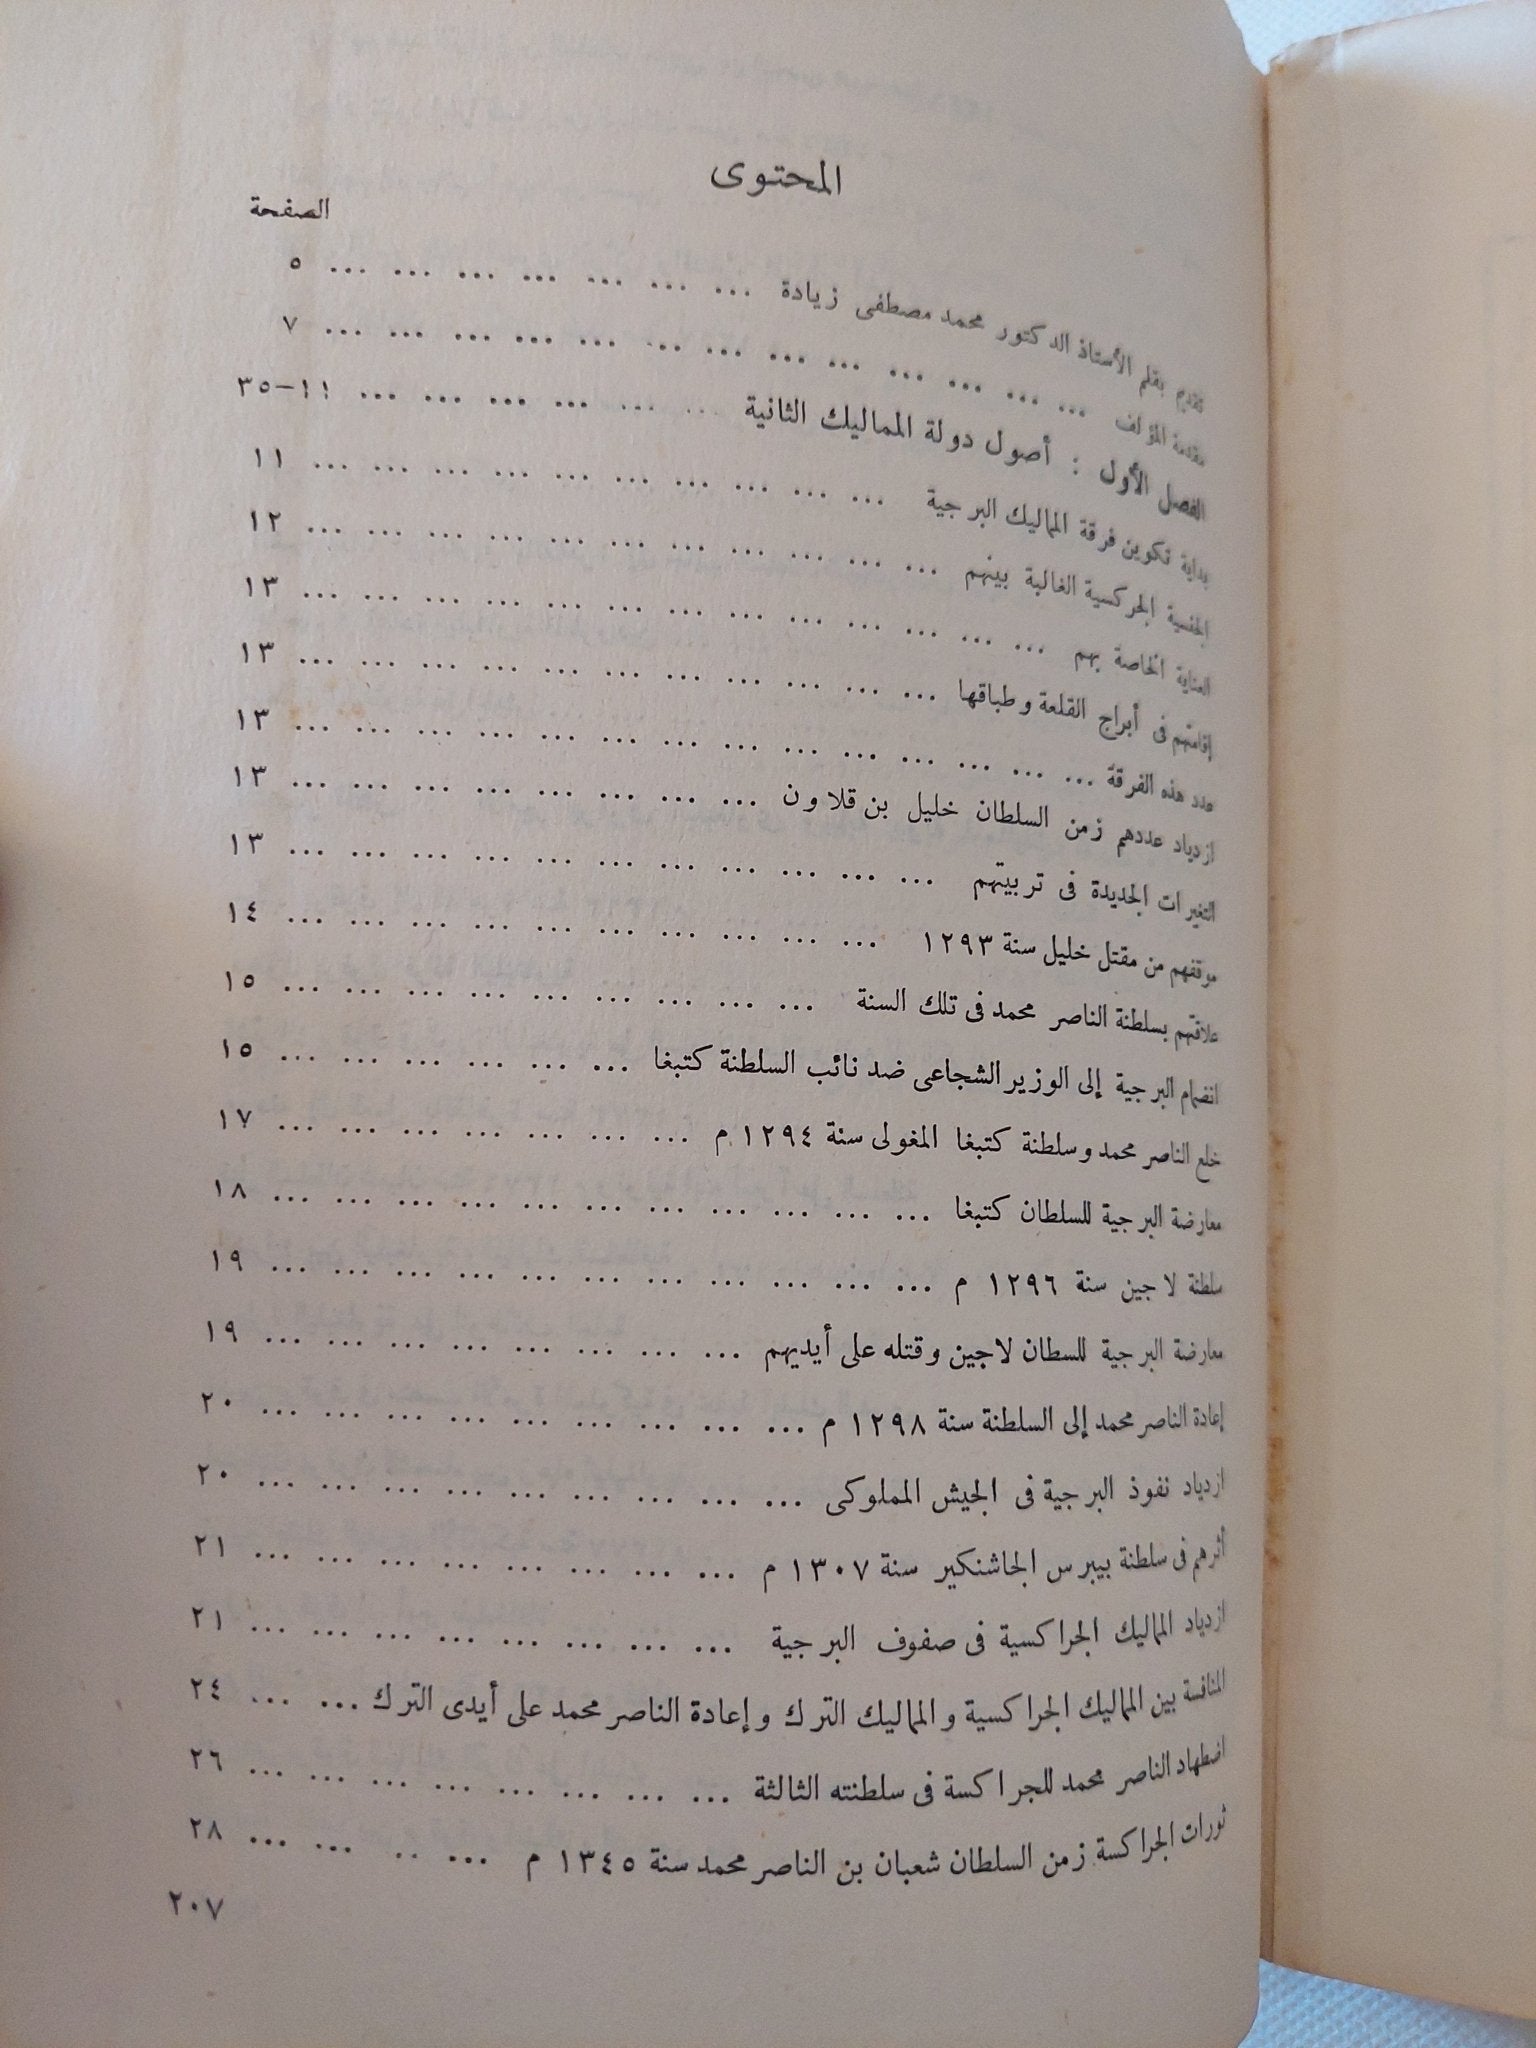 المحتوى
الصفحة
تقديم بقلم الأستاذ الدكتور محمد مصطفى زيادة ... ... ... ... ... ... ... ٥
مقدمة المؤلف ... ... ... ... ... ... ... ... ... ... ... ... ... ٧
الفصل الأول : أصول دولة المماليك الثانية ... ... ... ... ... ... ١١–٣٥
بداية تكوين فرقة المماليك البرجية ... ... ... ... ... ... ... ... ... ... ١١
الجنسية الجركسية الغالبة بينهم ... ... ... ... ... ... ... ... ... ... ... ١٢
العناية الخاصة بهم ... ... ... ... ... ... ... ... ... ... ... ... ... ١٣
إقامتهم فى أبراج القلعة وطباقها ... ... ... ... ... ... ... ... ... ... ... ١٣
عدد هذه الفرقة ... ... ... ... ... ... ... ... ... ... ... ... ... ... ١٣
ازدياد عددهم زمن السلطان خليل بن قلاون ... ... ... ... ... ... ... ... ١٣
التغيرات الجديدة فى تربيتهم ... ... ... ... ... ... ... ... ... ... ... ١٣
موقفهم من مقتل خليل سنة ١٢٩٣ ... ... ... ... ... ... ... ... ... ... ١٤
علاقتهم بسلطنة الناصر محمد فى تلك السنة ... ... ... ... ... ... ... ... ... ١٥
انضمام البرجية إلى الوزير الشجاعى ضد نائب السلطنة كتبغا ... ... ... ... ... ... ١٥
خلع الناصر محمد وسلطنة كتبغا المغولى سنة ١٢٩٤ م ... ... ... ... ... ... ... ١٧
معارضة البرجية للسلطان كتبغا ... ... ... ... ... ... ... ... ... ... ... ١٨
سلطنة لاجين سنة ١٢٩٦ م ... ... ... ... ... ... ... ... ... ... ... ١٩
معارضة البرجية للسطان لاجين وقتله على أيديهم ... ... ... ... ... ... ... ... ١٩
إعادة الناصر محمد إلى السلطنة سنة ١٢٩٨ م ... ... ... ... ... ... ... ... ... ٢٠
ازدياد نفوذ البرجية فى الجيش المملوكى ... ... ... ... ... ... ... ... ... ٢٠
أثرهم فى سلطنة بيبرس الجاشنكير سنة ١٣٠٧ م ... ... ... ... ... ... ... ... ٢١
ازدياد المماليك الجراكسية فى صفوف البرجية ... ... ... ... ... ... ... ... ٢١
المنافسة بين المماليك الجراكسية والمماليك الترك وإعادة الناصر محمد على أيدى الترك ... ... ٢٤
اضطهاد الناصر محمد للجراكسة فى سلطنته الثالثة ... ... ... ... ... ... ... ... ٢٦
ثورات الجراكسة زمن السلطان شعبان بن الناصر محمد سنة ١٣٤٥ م ... .. ... ... ٢٨
٢٠٧